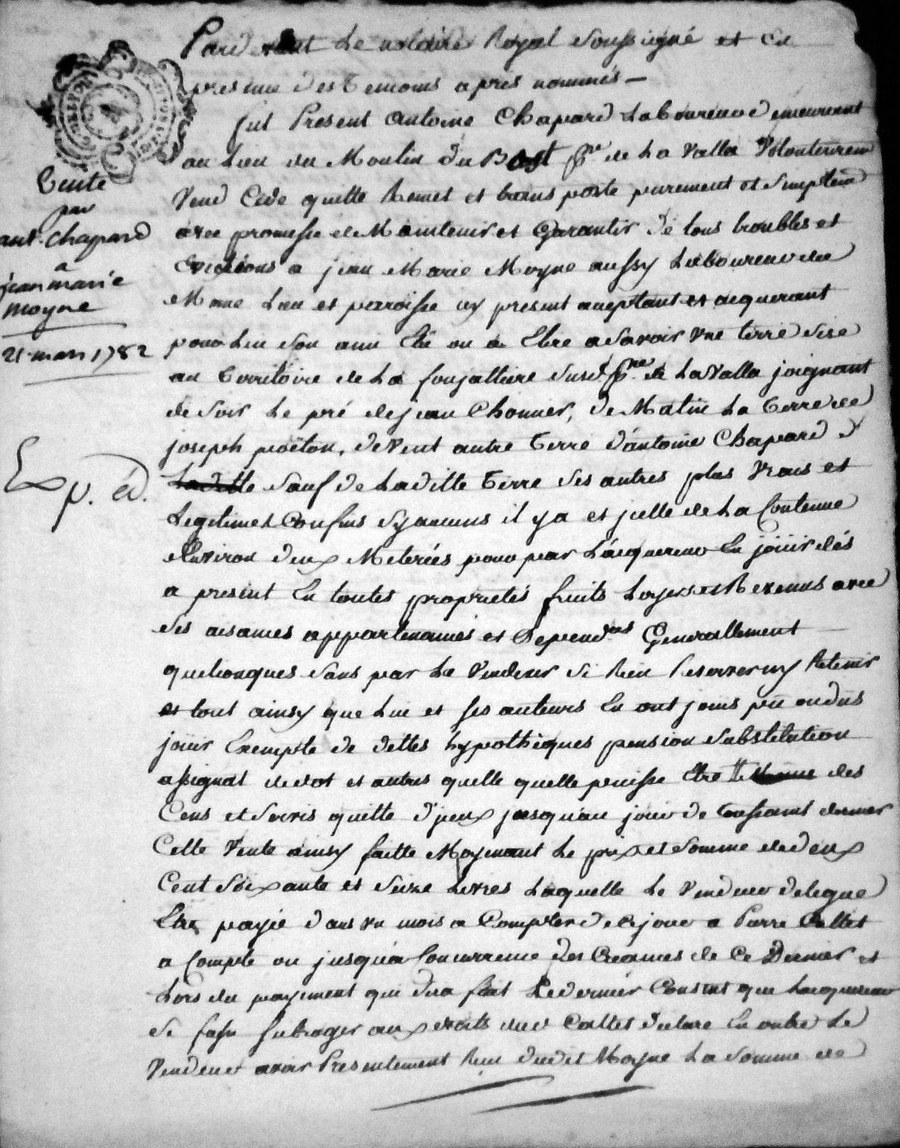 Pard vant Le notaire Royal Soussigné et En
presence des Temoins apres nommés —
fut Present antoine Chapard Laboureur demeurant
au Lieu du Moulin du Bost psse de La Valla Volontairem
Vend Cede quitte Remet et transporte purement et Simplem
avec promesse de Maintenir et Garantir de tous troubles et
Evictions a jean Marie Moyne aussy Laboureur du
Meme Lieu et paroisse icy present acceptant et acquerant
pour Lui Son ami Elu ou a Elire a Savoir Une terre Sise
au Territoire de La foujattiere Susd. psse de La Valla joignant
de Soir Le pré de jean Chonner, de Matin La Terre de
joseph poëton, de Vent autre Terre d'antoine Chapard
Laditte Sauf de Laditte Terre Ses autres plus Vrais et
Legitimes Confins Sy aucuns il y a et jcelle de La Contenue
d'Environ deux Meterées pour par L'acquereur En joüir dés
a present En toutes proprietés fruits Loyers et Revenus avec
Ses aisances appartenances et dependces Generallement
quelconques Sans par Le Vendeur Se Rien Reserver ny Retenir
et tout ainsy que Lui et Ses auteurs En ont jouis pû ou dus
joüir Exempte de dettes hypotheques pension Substitution
assignat de dot et autres quelle quelle puisse Etre des
Cens et Servis quitte d'jceux jusqu'au jour de Toussaint dernier
Cette Vente ainsy faitte Moyenant Le prix et Somme de deux
Cent Soixante et Seize Livres Laquelle Le Vendeur delegue
Etre payée dans un mois a Compter de ce jour a Pierre Callet
a Compte ou jusqu'a Concurrence des Creances de Ce Dernier et
Lors du payement qui Sera fait Ledernier Consent que Lacquereur
Se fasse Subroger aux droits dud Callet declare En outre Le
Vendeur avoir Presentement Recu dudit Moyne La Somme de
Vente
par
ant. Chapard
a
jean marie
Moyne
21 mars 1782
Exp. éd.